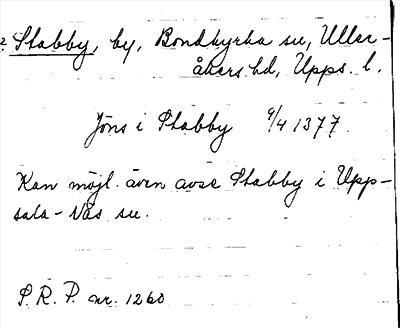 ? Stabby, by, Bondkyrka sn, Uller-
åkers hd, Upps. l.
Jöns i Stabby 9/4 1377.
Kan möjl. även avse Stabby i Upp-
sala-Näs sn.
S. R. P. nr. 1260